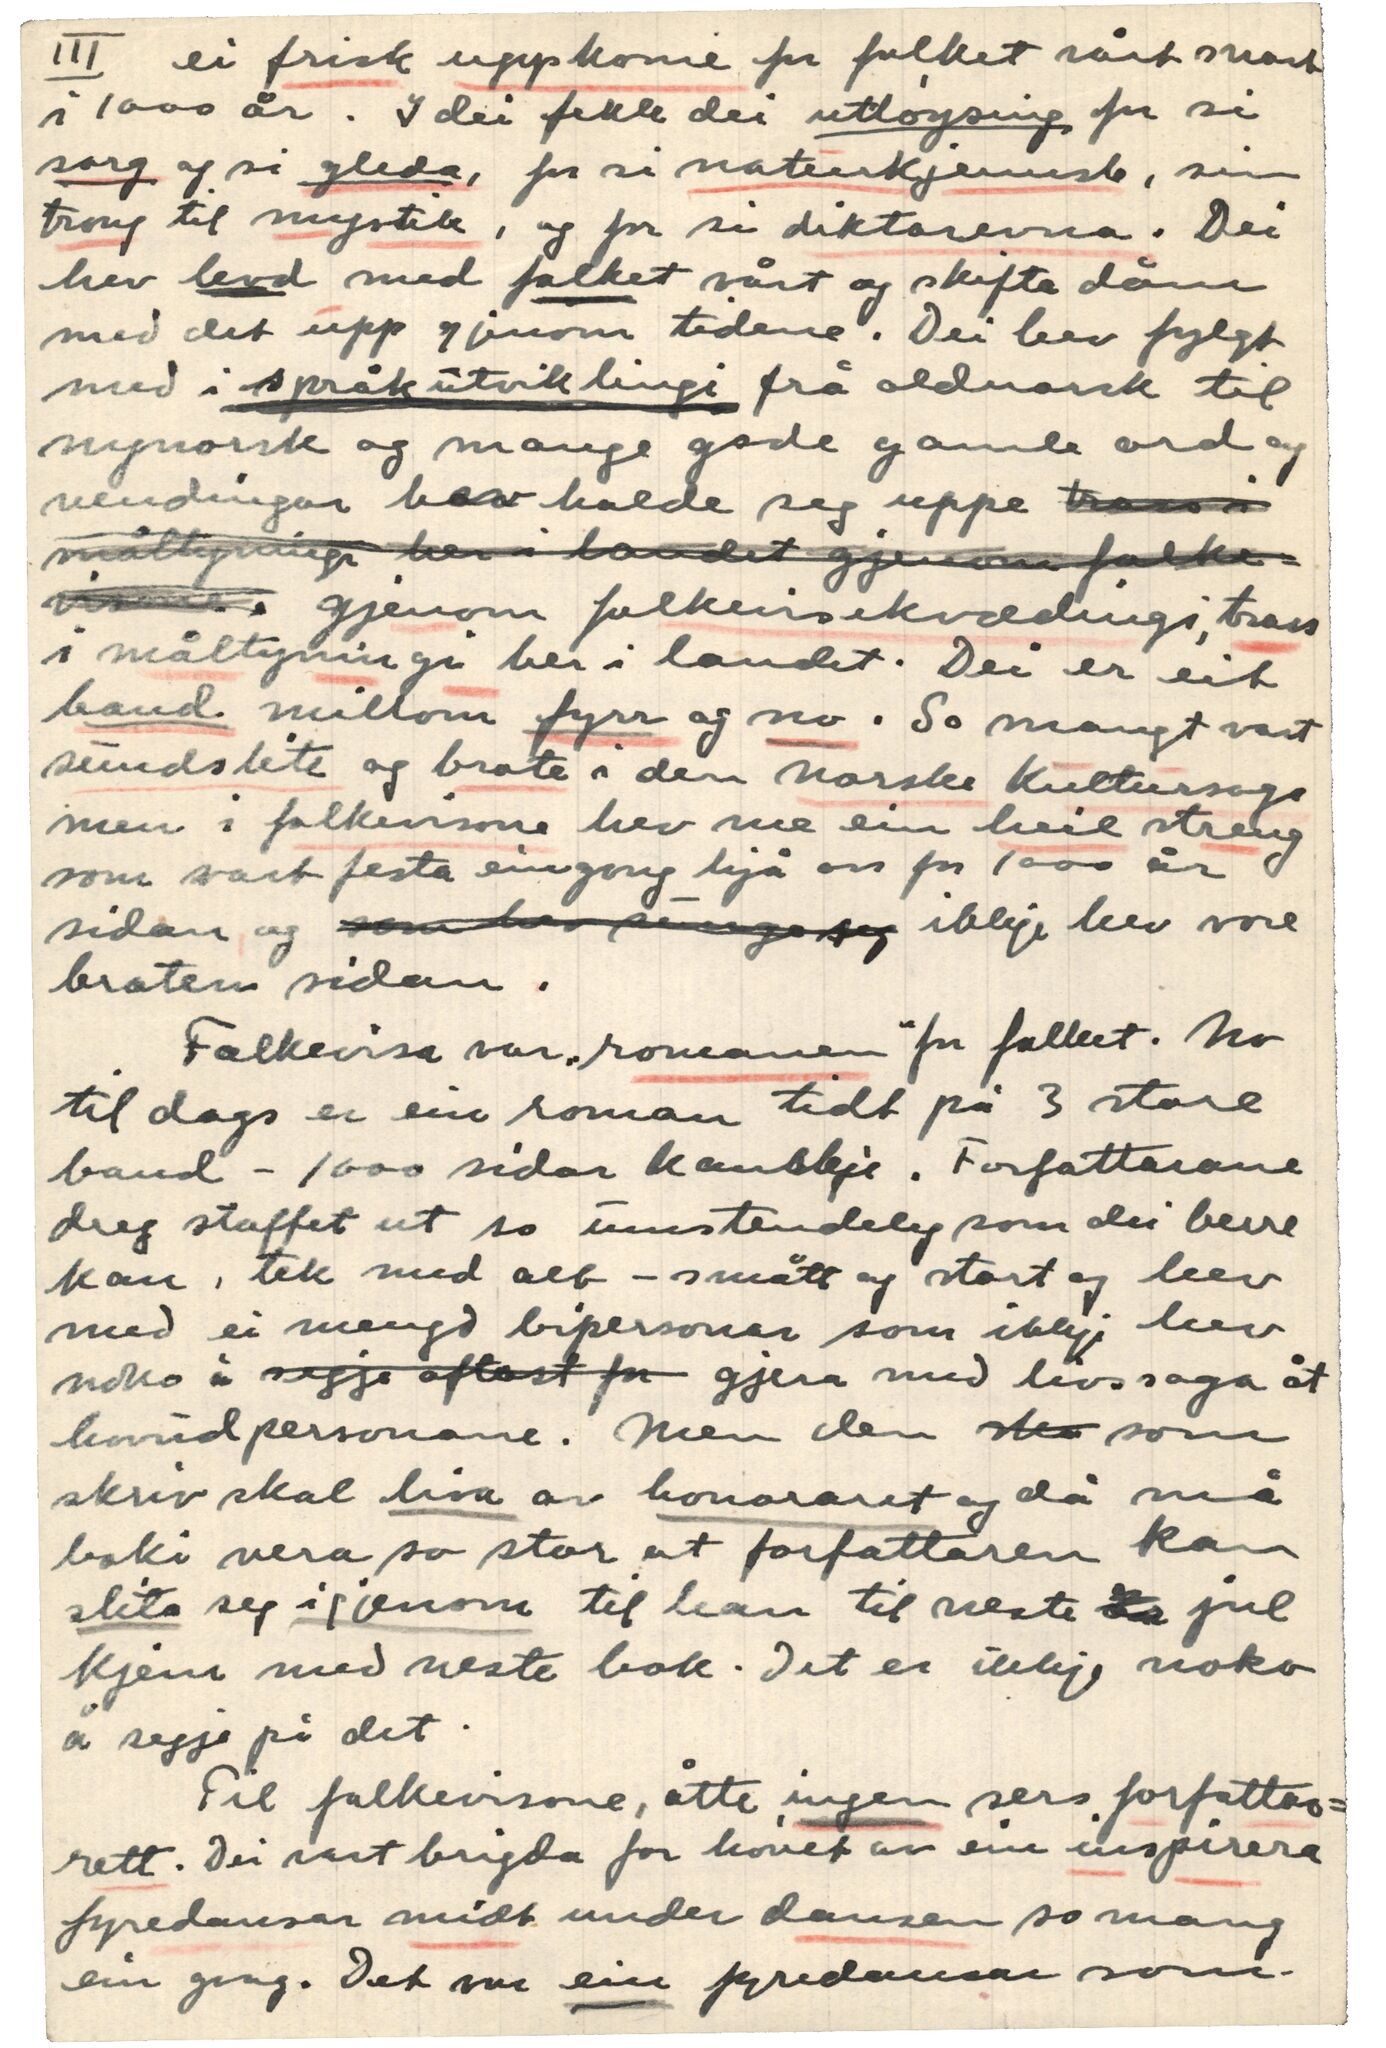 III ei frisk uppkome for folket vårt snart
i 1000 år. I dei fekk dei utløysing for si
sorg og si gleda, for si naturkjennsle, sin
trong til mystikk, og for si diktarevna. Dei
hev levd med folket vårt og skifta dåm
med det upp gjenom tidene. Dei hev fylgt
med i språkutviklingi frå oldnorsk til
nynorsk og mange gode gamle ord og
vendingar hev halde seg uppe trass i
måltyningi her i landet gjenom folke=
visone. gjenom folkevisekvædingi, trass
i måltyningi her i landet. Dei er eit
band millom fyrr og no. So mangt vart
sundslite og brote i den norske kultursoga
men i folkevisone hev me ein heil streng
som vart festa eingong hjå oss for 1000 år
sidan og som hev sunge seg ikkje hev vore
broten sidan.
Folkevisa var „romanen" for folket. No
til dags er ein roman tidt på 3 store
band - 1000 sidor kanskje. Forfattarane
dreg stoffet ut so umstendeleg som dei berre
kan, tek med alt - smått og stort og hev
med ei mengd bipersonar som ikkje hev
noko å segje oftast for gjera med livssoga åt
hovudpersonane. Men den som
skriv skal liva av honoraret og då må
boki vera so stor at forfattaren kan
slita seg igjenom til han til neste jul
kjem med neste bok. Det er ikkje noko
å segje på det.
Til folkevisone, åtte ingen sers forfattar=
rett. Dei vart brigda for hovet av ein inspirera
fyredansar midt under dansen so mang
ein gong. Det var ein fyredansar som